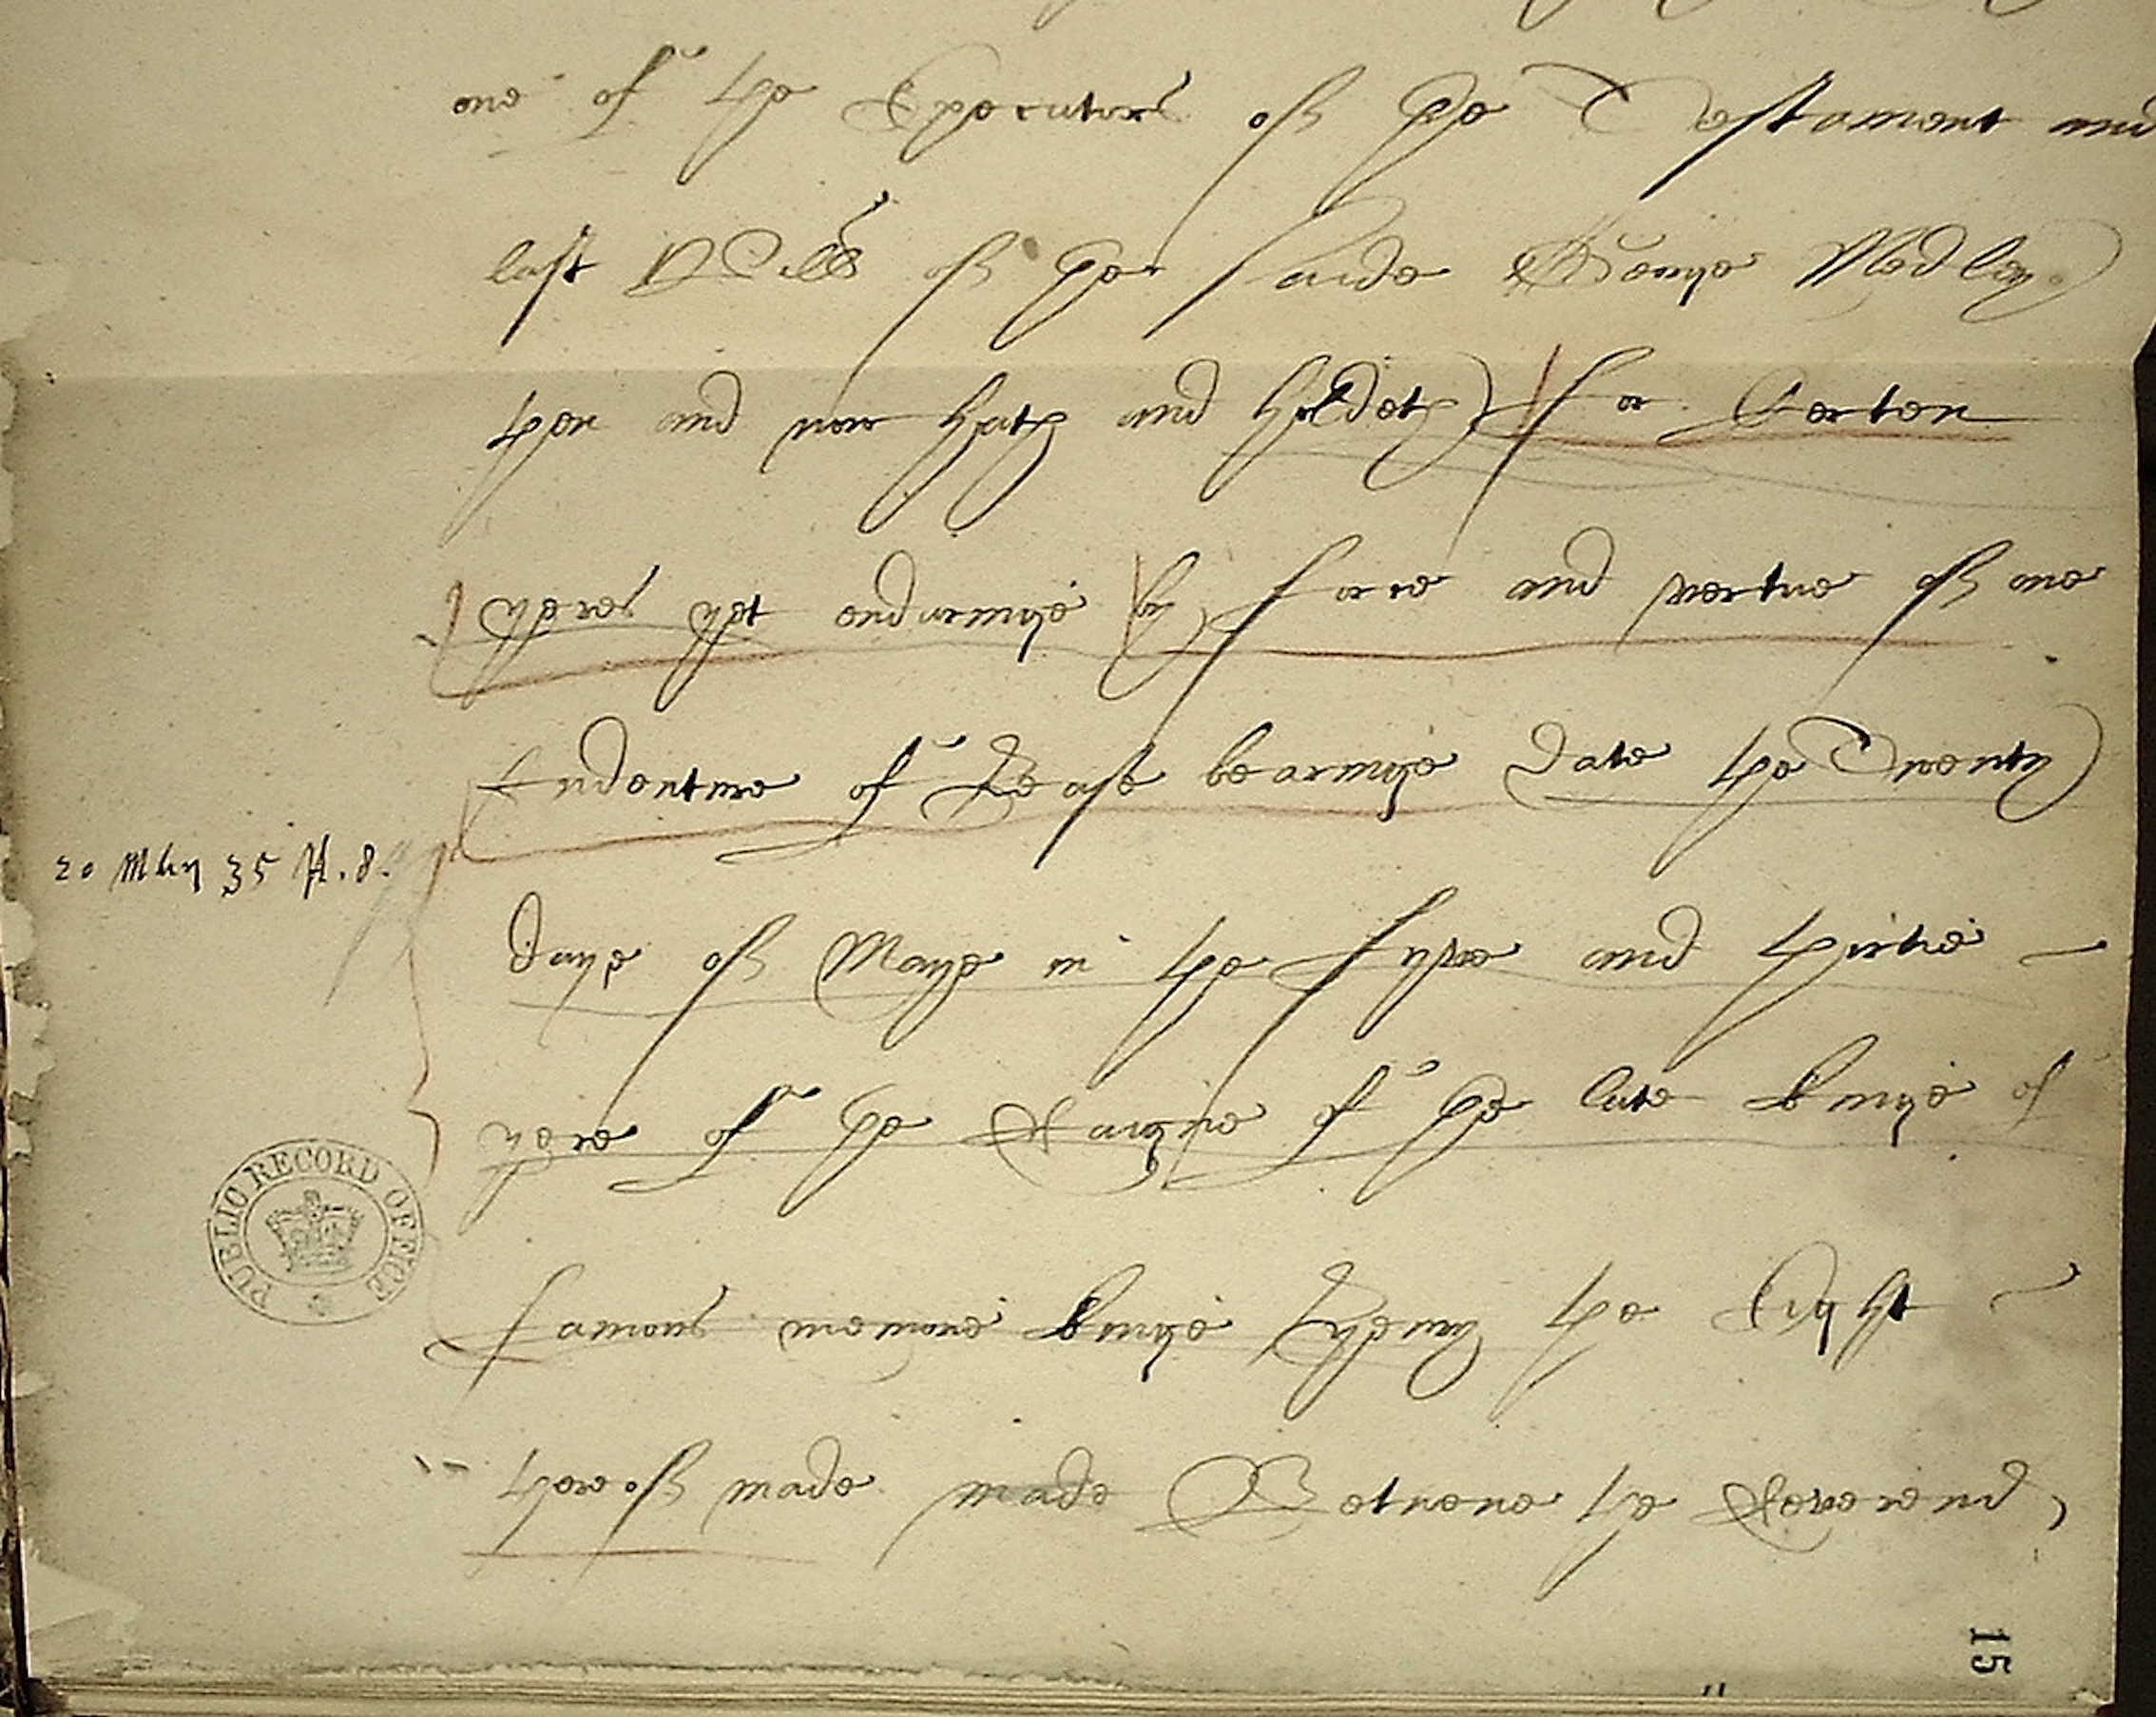 one of the Executors of the Testament and
last Will of her saide George Medley
then and now hath and holdeth for Certen
yeres yet enduringe by force and vertue of one
Indenture of Lease bearinge Date the Twenty
20 May 35 H. 8.
Daye of Maye in the fyve and thirtie
yere of the Raigne of the late kinge of
famous memorie kinge Henry the Eight
thereof made made Betwene the Reverend
PUBLIC RECORD OFFICE
15